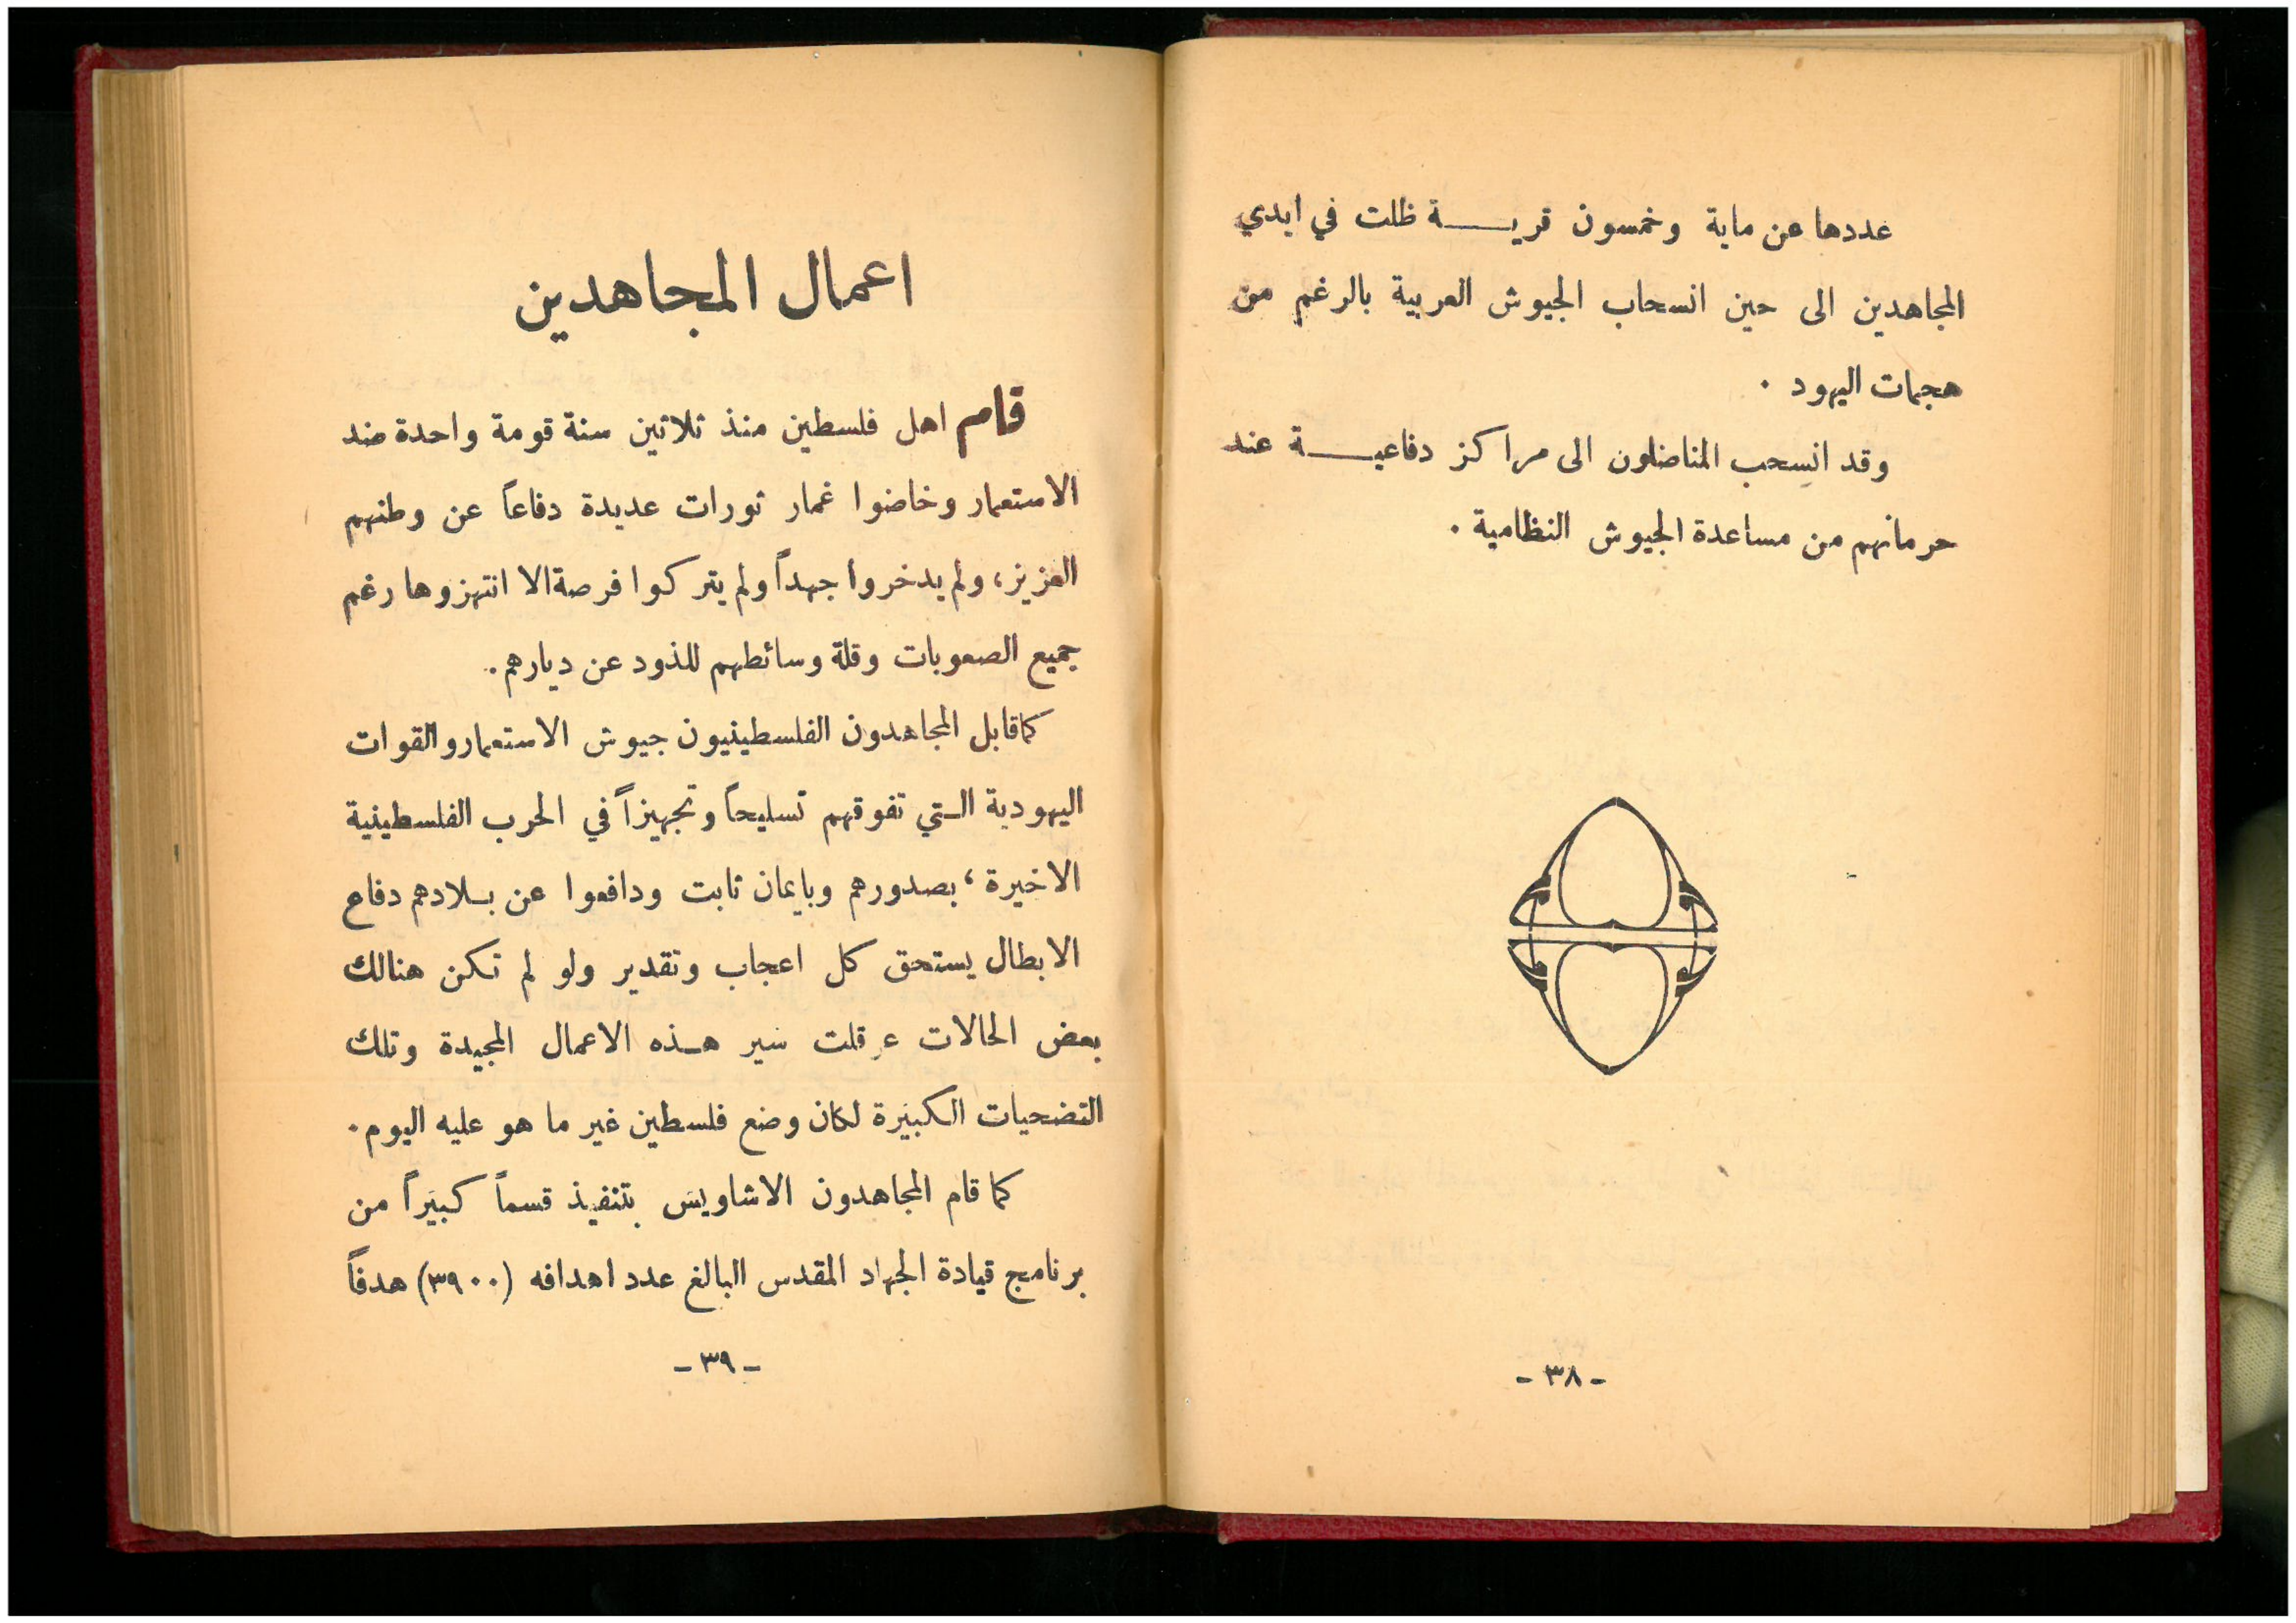 عددها عن ماية وخمسون قريـــة ظلت في ايدي
المجاهدين الى حين انسحاب الجيوش العربية بالرغم من
هجمات اليهود .
وقد انسحب المناضلون الى مراكز دفاعيـــة عند
حرمانهم من مساعدة الجيوش النظامية .
- ٣٨ -
اعمال المجاهدين
قام اهل فلسطين منذ ثلاثين سنة قومة واحدة ضد
الاستعمار وخاضوا غمار ثورات عديدة دفاعاً عن وطنهم
العزيز، ولم يدخروا جهداً ولم يتركوا فرصة الا انتهزوها رغم
جميع الصعوبات وقلة وسائطهم للذود عن ديارهم.
كما قابل المجاهدون الفلسطينيون جيوش الاستعمار والقوات
اليهودية الـتي تفوقهم تسليحاً وتجهيزاً في الحرب الفلسطينية
الاخيرة، بصدورهم وبايمان ثابت ودافعوا عن بـلادهم دفاع
الابطال يستحق كل اعجاب وتقدير ولو لم تكن هنالك
بعض الحالات عرقلت سير هـذه الاعمال المجيدة وتلك
التضحيات الكبيرة لكان وضع فلسطين غير ما هو عليه اليوم.
كما قام المجاهدون الاشاويس بتنفيذ قسماً كبيراً من
برنامج قيادة الجهاد المقدس البالغ عدد اهدافه (٣٩٠٠) هدفاً
- ٣٩ -